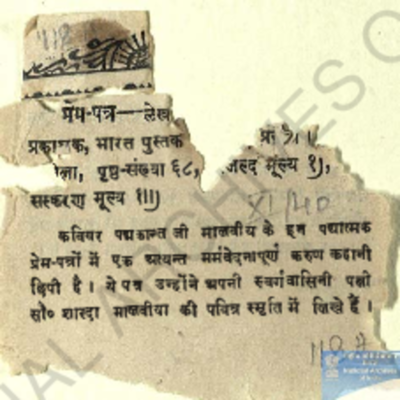 118
प्रेम-पत्र—लेख
प्रकाशक, भारत पुस्तक
पृष्ठ-संख्या ६८, जिल्द मूल्य १),
संस्करण मूल्य १॥)
कविवर पद्मकान्त जी मालवीय के इन पद्यात्मक
प्रेम-पत्रों में एक अत्यन्त मर्मवेदनापूर्ण करुण कहानी
छिपी है । ये पत्र उन्होंने अपनी स्वर्गवासिनी पत्नी
सौ० शारदा मालवीया की पवित्र स्मृति में लिखे हैं ।